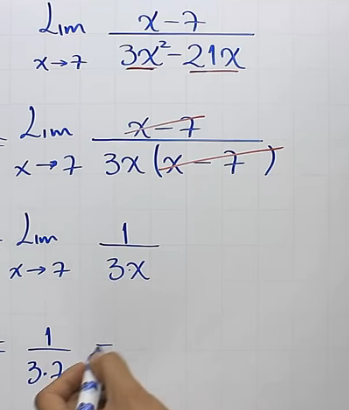 Lim x→7 (x-7)/(3x²-21x)
= Lim x→7 (x-7)/(3x(x-7))
= Lim x→7 1/(3·x)
= 1/(3·7) =